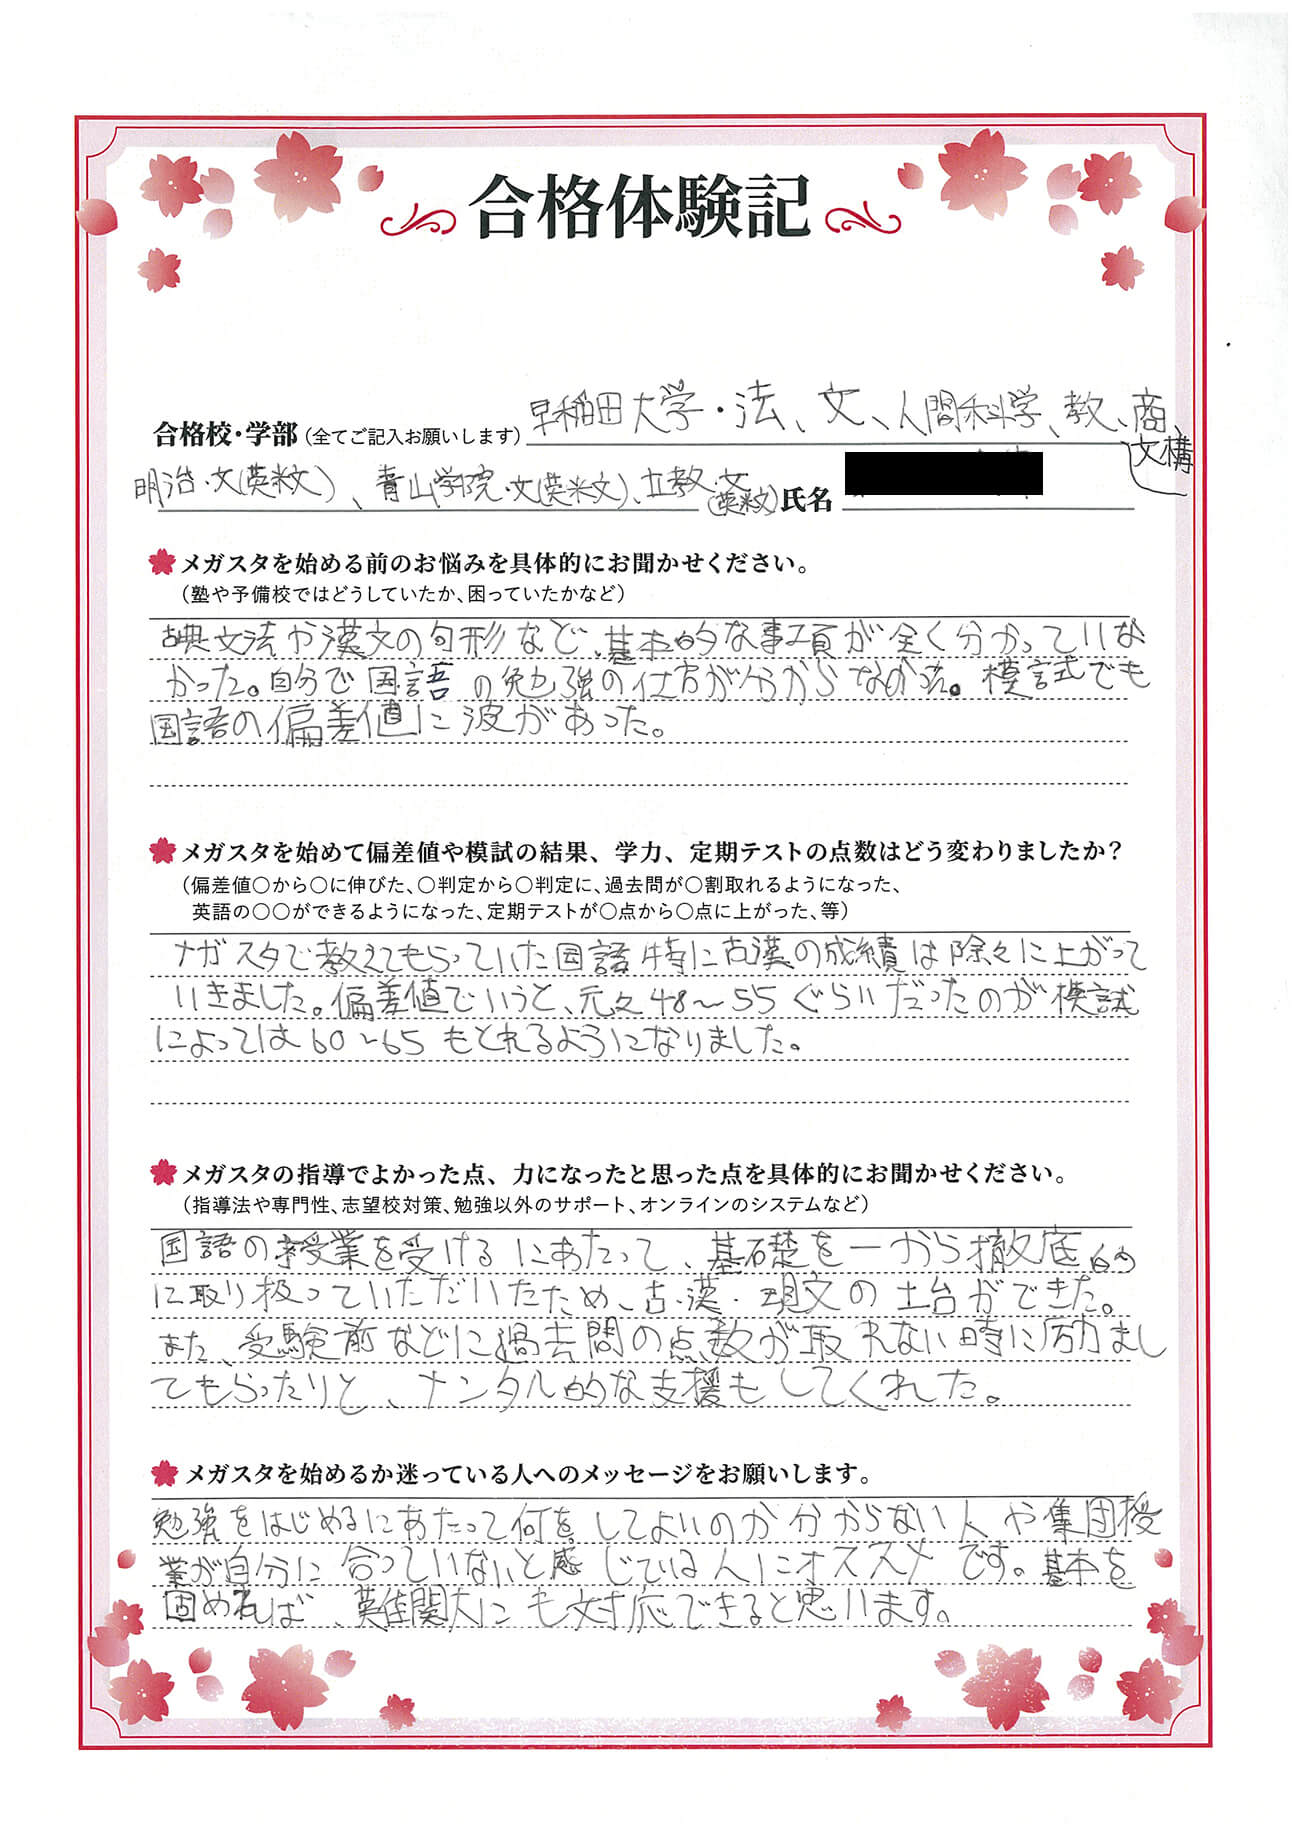 合格体験記
合格校・学部（全てご記入お願いします）早稲田大学・法、文、人間科学、教、商、
文構
明治・文(英米文)、青山学院・文(英米文)、立教・文(英米文) 氏名
メガスタを始める前のお悩みを具体的にお聞かせください。
（塾や予備校ではどうしていたか、困っていたかなど）
古典文法や漢文の句形など、基本的な事項が全く分かっていな
かった。自分で国語の勉強の仕方が分からなかった。模試でも
国語の偏差値に波があった。
メガスタを始めて偏差値や模試の結果、学力、定期テストの点数はどう変わりましたか？
（偏差値○から○に伸びた、○判定から○判定に、過去問が○割取れるようになった、
英語の○○ができるようになった、定期テストが○点から○点に上がった、等）
メガスタで教えてもらっていた国語特に古漢の成績は除々に上がって
いきました。偏差値でいうと、元々48～55ぐらいだったのが模試
によっては60～65もとれるようになりました。
メガスタの指導でよかった点、力になったと思った点を具体的にお聞かせください。
（指導法や専門性、志望校対策、勉強以外のサポート、オンラインのシステムなど）
国語の授業を受けるにあたって、基礎を一から徹底的
に取り扱っていただいたため、古・漢・現文の土台ができた。
また、受験前などに過去問の点数が取れない時に励まし
てもらったりと、メンタル的な支援もしてくれた。
メガスタを始めるか迷っている人へのメッセージをお願いします。
勉強をはじめるにあたって何をしてよいのか分からない人や集団授
業が自分に合っていないと感じている人にオススメです。基本を
固めれば、難関大にも対応できると思います。